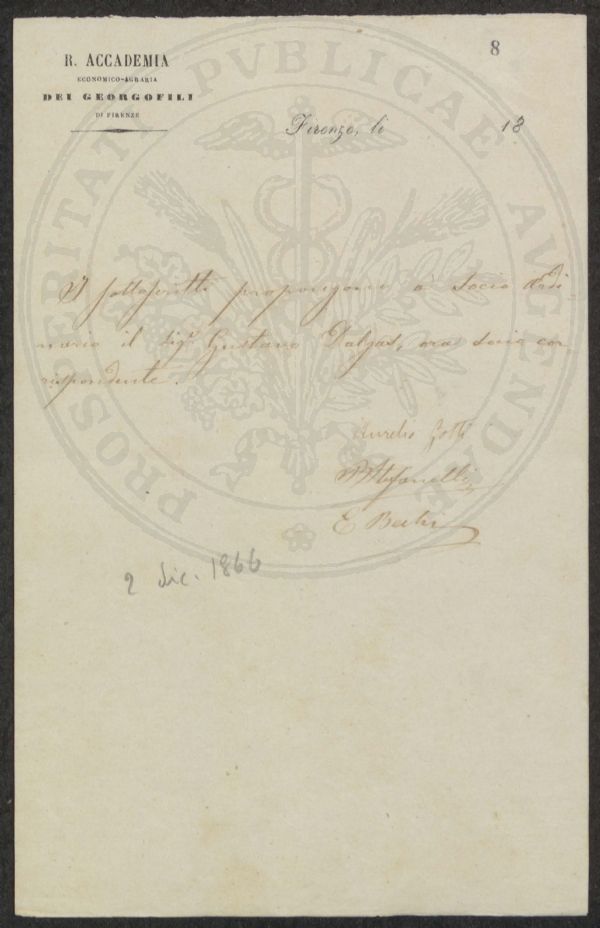 8
R. ACCADEMIA
ECONOMICO-AGRARIA
DEI GEORGOFILI
DI FIRENZE
Firenze, li 18
PROSPERITATI PVBLICAE AVGENDAE
I sottoscritti propongono a Socio Ordi-
nario il Sig. Gustavo Dalgas, ora socio cor-
rispondente.
Aurelio Gotti
Stefanelli
E Bechi
2 Dic. 1866